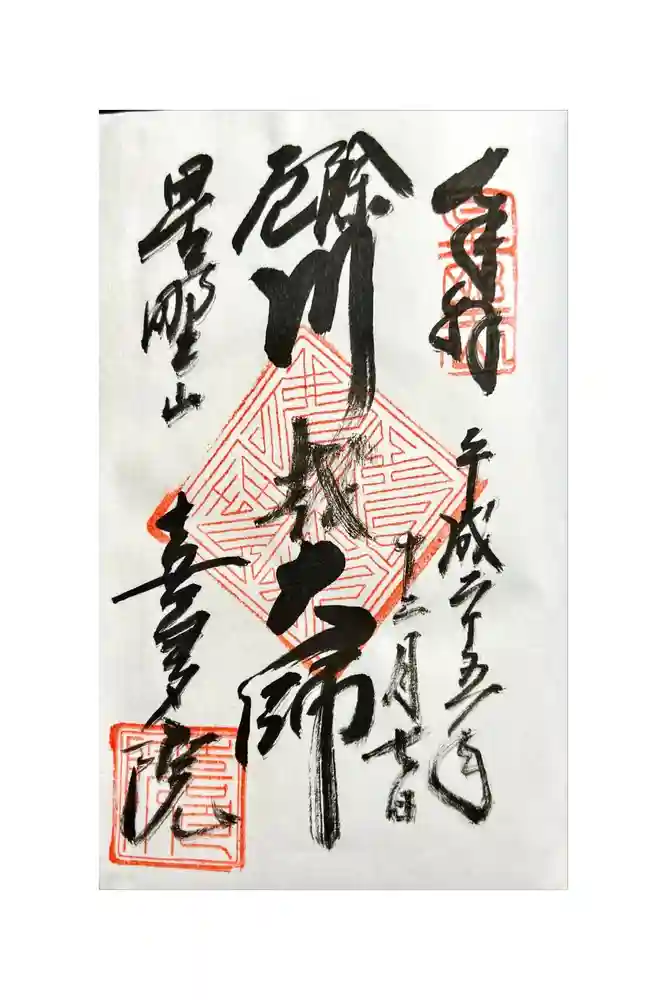 奉拝
平成二十五年
十二月七日
厄除
川越大師
星野山
喜多院